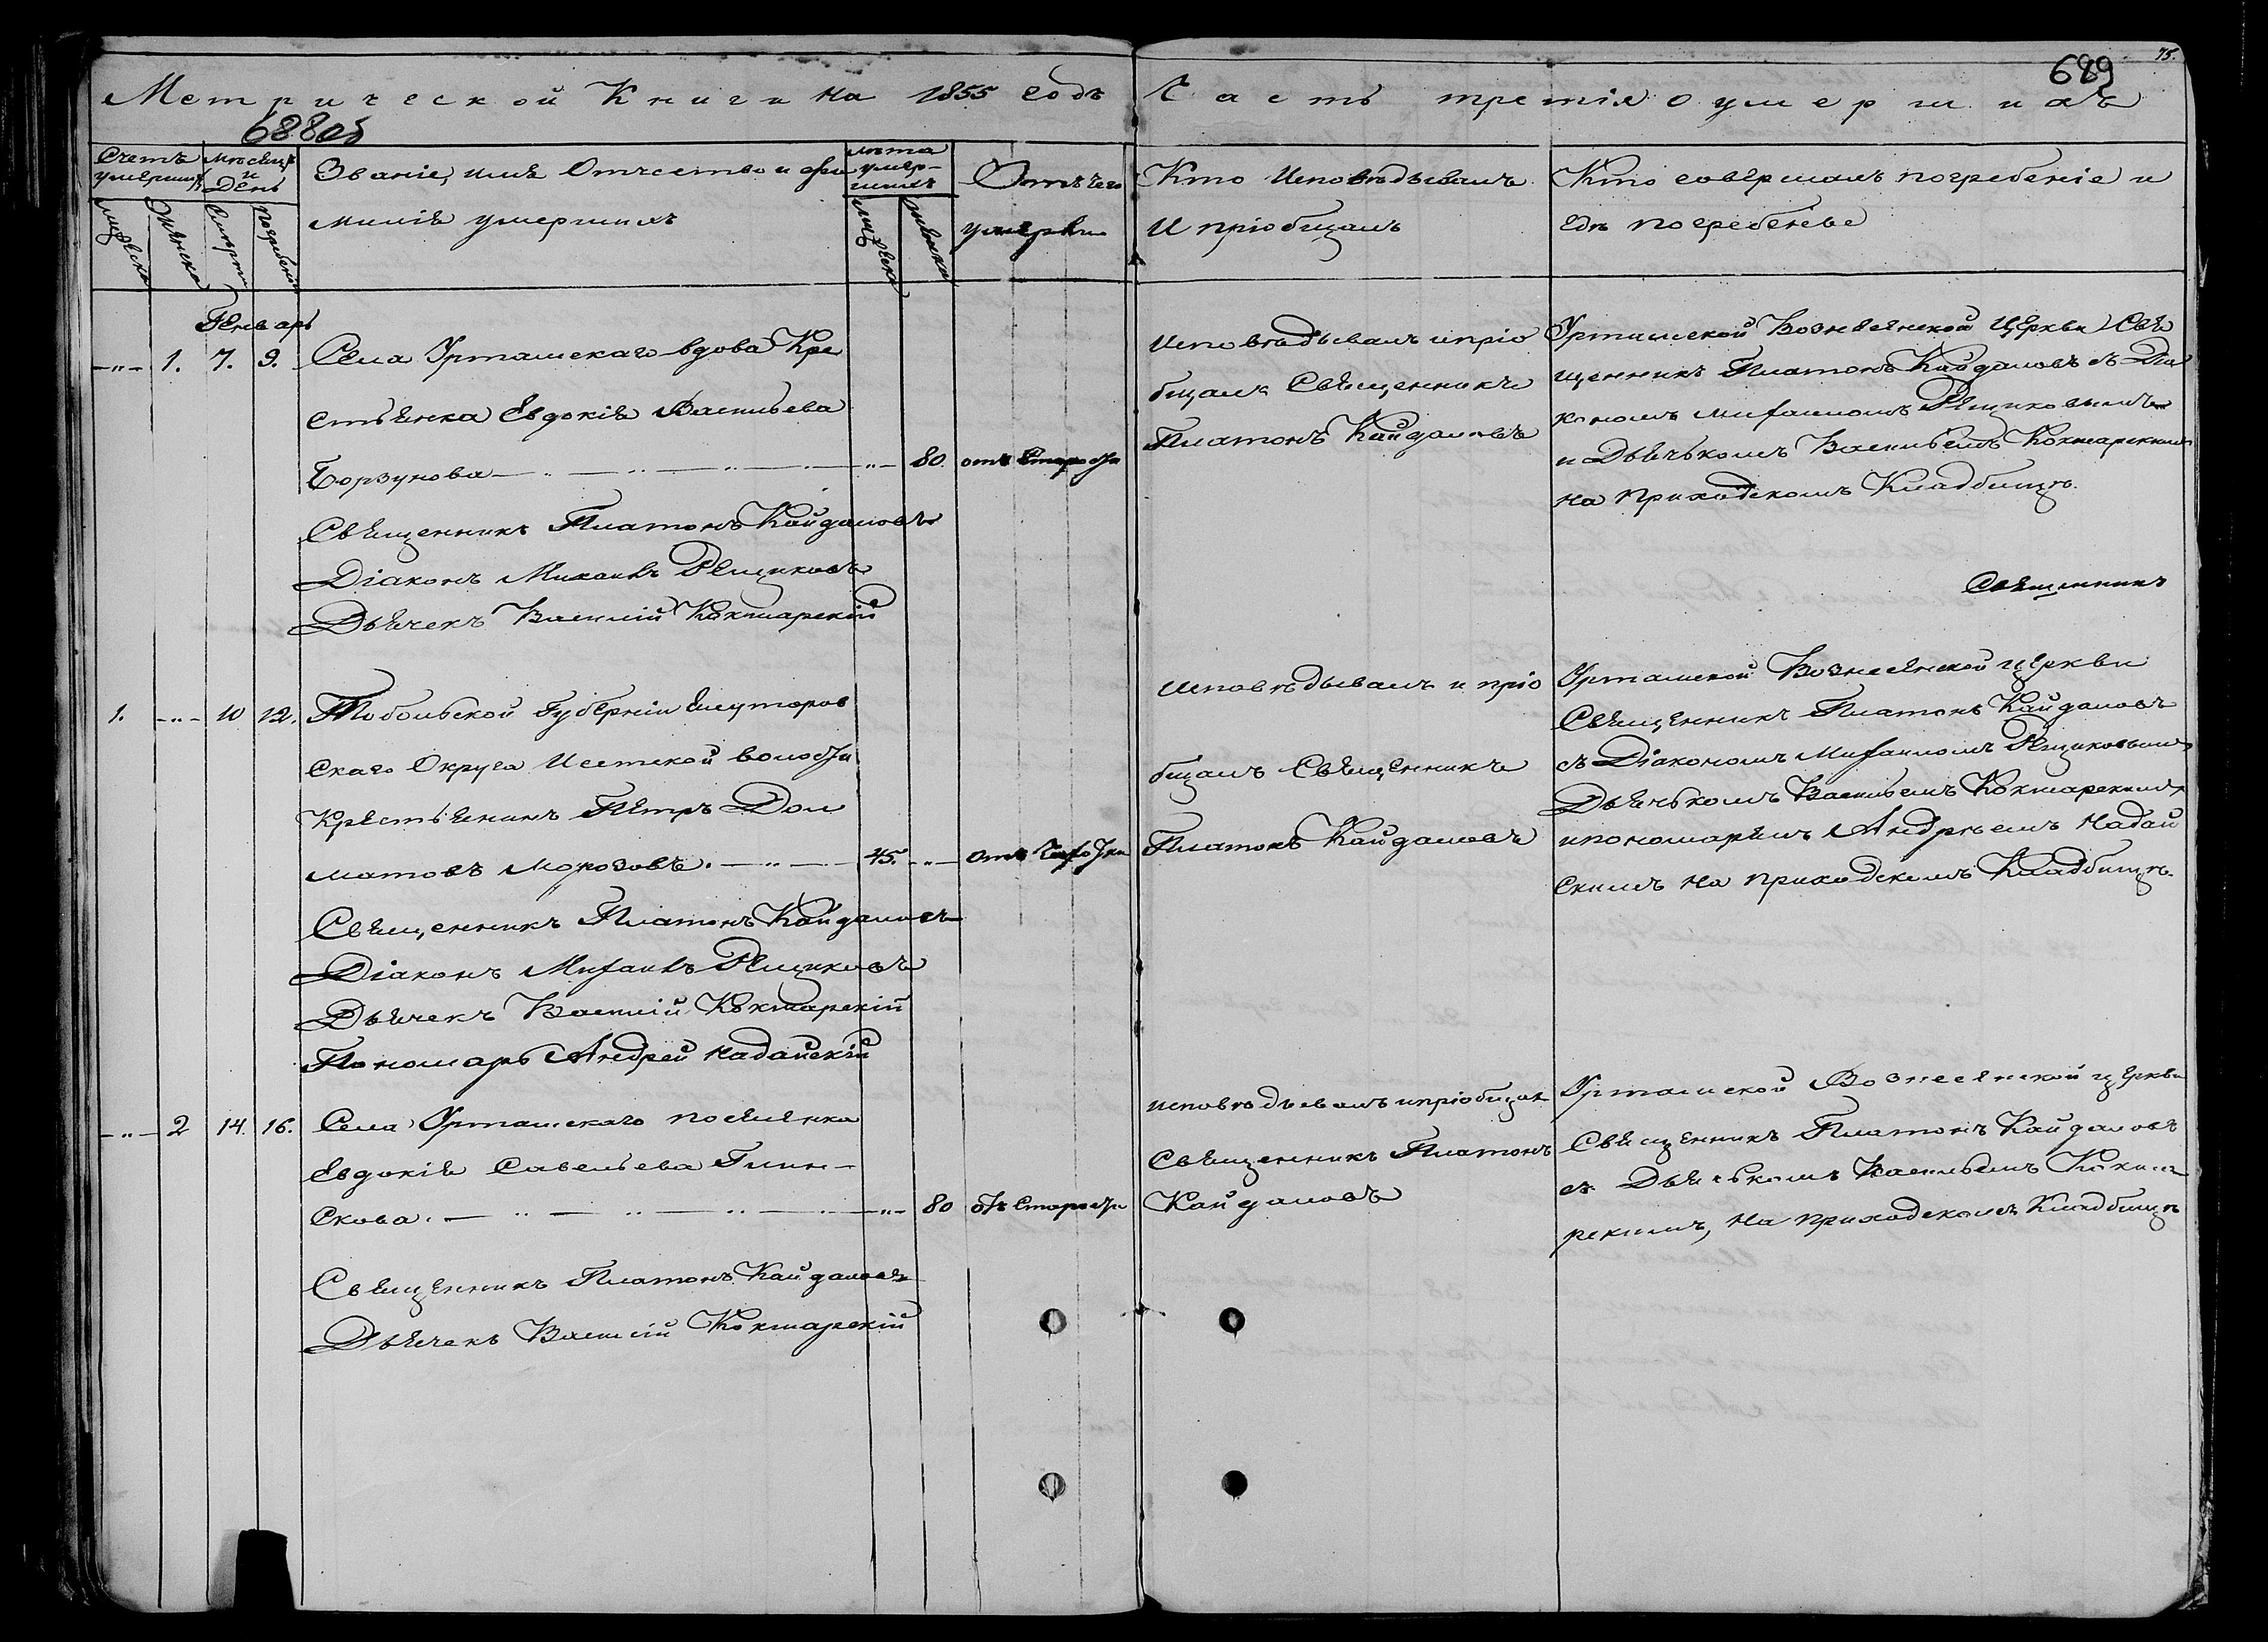 Метрической Книги на 1855 годъ
688об
Часть третія о умершихъ
689
75.
Счетъ умершихъ
Мѣсяцъ и День
Званіе, имя Отчество и фа
милія умершихъ
лѣта умер-
шихъ
Отъ чего
умерли
Кто Исповѣдывалъ
И пріобщалъ
Кто совершалъ погребеніе и
гдѣ погребены
мужеска
женска
Смерти
погребенія
мужеска
женска
Генварь
-"- 1. 7. 9. Села Урташскаго вдова Кре
стьянка Евдокія Васильева
Борзунова -"- 80. отъ Старости
Священникъ Платонъ Кайдаловъ
Діаконъ Михаилъ Рещиковъ
Дьячекъ Василій Кокшарскій
Исповѣдывалъ и пріо
бщалъ Священникъ
Платонъ Кайдаловъ
Урташской Вознесенской Церкви Свя
щенникъ Платонъ Кайдаловъ съ Діа
кономъ Михаиломъ Рещиковымъ
и Дьячькомъ Васильемъ Кокшарскимъ
на Приходскомъ Кладбищѣ.
Священникъ
1. -"- 10 12. Тобольской Губерніи Ялуторов
скаго Округа Исетской волости
Крестьянинъ Петръ Дол
матовъ Морозовъ. 45. -"- отъ Чахотки
Священникъ Платонъ Кайдаловъ
Діаконъ Михаилъ Рещиковъ
Дьячекъ Василій Кокшарскій
Пономарь Андрей Надайскій
Исповѣдывалъ и пріо
бщалъ Священникъ
Платонъ Кайдаловъ
Урташской Вознесенской церкви
Священникъ Платонъ Кайдаловъ
съ Діакономъ Михаиломъ Рещиковымъ
Дьячькомъ Васильемъ Кокшарскимъ
и пономаремъ Андреемъ Надай
скимъ на приходскомъ Кладбищѣ.
-"- 2 14. 16. Села Урташскаго поселянка
Евдокія Савельева Глин-
скова. -"- 80 отъ Старости
Священникъ Платонъ Кайдаловъ
Дьячекъ Василій Кокшарскій
исповѣдывалъ и пріобщалъ
Священникъ Платонъ
Кайдаловъ
Урташской Вознесенской церкви
Священникъ Платонъ Кайдаловъ
съ Дьячькомъ Васильемъ Кокша
рскимъ, на приходскомъ Кладбищѣ